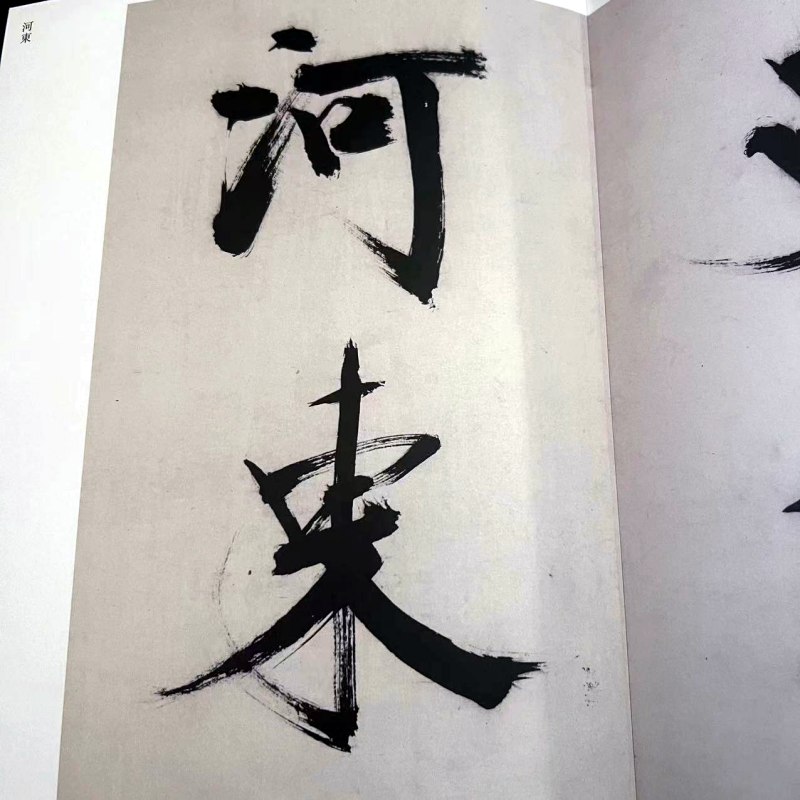 河東
河東